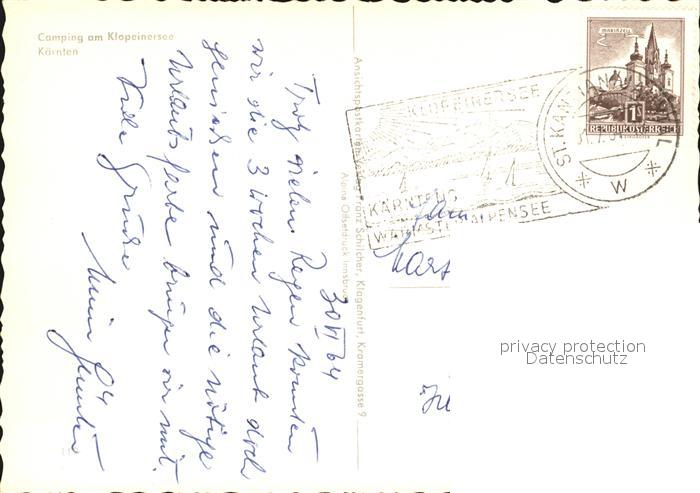 Camping am Klopeinersee
Kärnten
30 VI 64
Trotz vielem Regen konnten
wir die 3 Wochen Urlaub doch
genießen und die nötige
Urlaubsfarbe bringen wir mit.
Viele Grüße
Günter
Ansichtspostkarten-Verlag Franz Schilcher, Klagenfurt, Kramergasse 9
Alpina Offsetdruck Innsbruck
KLOPEINERSEE
KÄRNTENS
WÄRMSTER ALPENSEE
ST. KANZIAN
W
MARIAZELL
1S
REPUBLIK ÖSTERREICH
privacy protection
Datenschutz